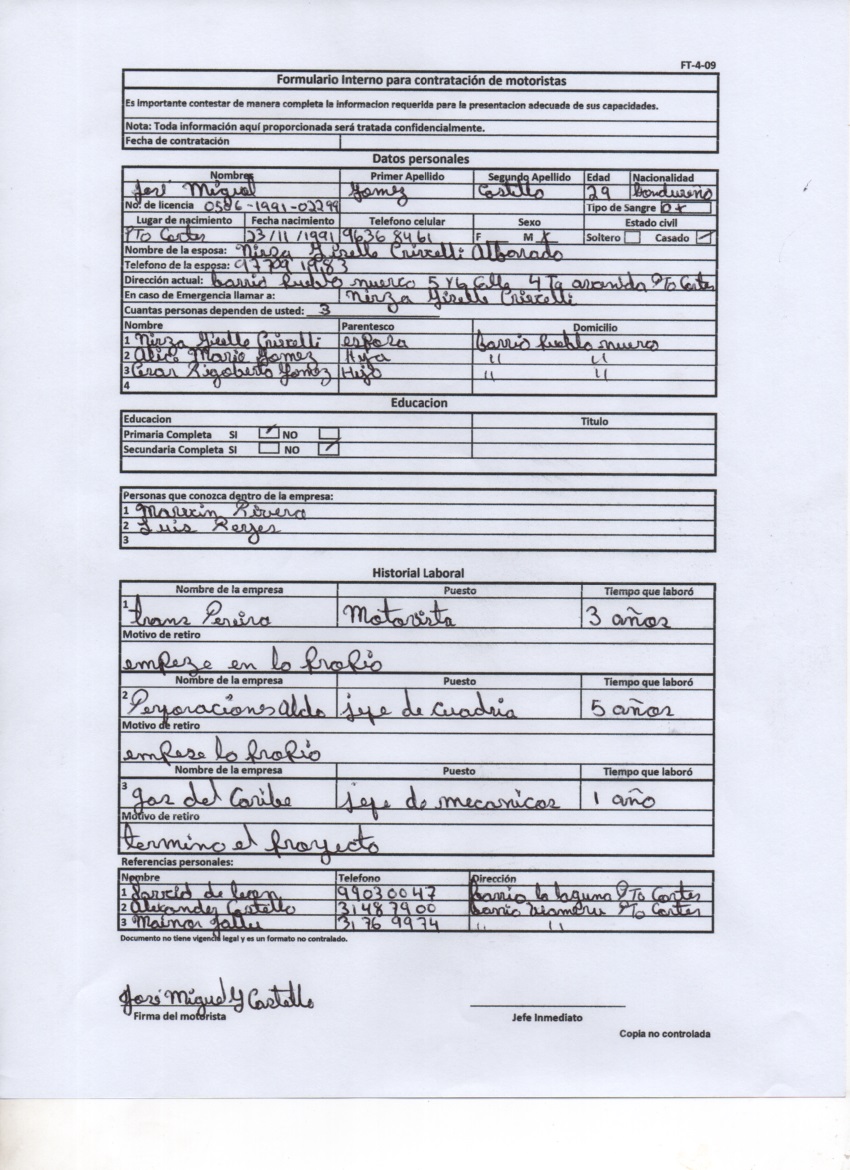 FT-4-09
Formulario Interno para contratación de motoristas
Es importante contestar de manera completa la informacion requerida para la presentacion adecuada de sus capacidades.
Nota: Toda información aquí proporcionada será tratada confidencialmente.
Fecha de contratación
Datos personales
Nombres Primer Apellido Segundo Apellido Edad Nacionalidad
José Miguel Gomez Castillo 29 hondureno
No. de licencia 0506-1991-02299 Tipo de Sangre O+
Lugar de nacimiento Fecha nacimiento Telefono celular Sexo Estado civil
PTO Cortes 23/11/1991 9636 8461 F M X Soltero Casado ✓
Nombre de la esposa: Nirza Giselle Alvarado
Telefono de la esposa: 9779 1983
Dirección actual: barrio Pueblo nuevo 5 y 6 Calle 4 Ta avenida PTo Cortes
En caso de Emergencia llamar a: Nirza Giselle
Cuantas personas dependen de usted: 3
Nombre Parentesco Domicilio
1 Nirza Giselle esposa barrio Pueblo nuevo
2 Maria Gomez Hija " "
3 Cesar Rigoberto Gomez Hijo " "
4
Educacion
Educacion Titulo
Primaria Completa SI ✓ NO
Secundaria Completa SI NO ✓
Personas que conozca dentro de la empresa:
1 Marvin Rivera
2 Luis Reyes
3
Historial Laboral
Nombre de la empresa Puesto Tiempo que laboró
1 trans Pereira Motorista 3 años
Motivo de retiro
empeze en lo propio
Nombre de la empresa Puesto Tiempo que laboró
2 Perforaciones Aldo jefe de cuadria 5 años
Motivo de retiro
empese lo propio
Nombre de la empresa Puesto Tiempo que laboró
3 gas del Caribe jefe de mecanicos 1 año
Motivo de retiro
termino el proyecto
Referencias personales:
Nombre Telefono Dirección
1 de leon 99030047 barrio la laguna PTo Cortes
2 Alexander Castello 3148 7900 barrio PTo Cortes
3 Mainor 3176 9974 " "
Documento no tiene vigencia legal y es un formato no contralado.
José Miguel G Castillo
Firma del motorista Jefe Inmediato
Copia no controlada